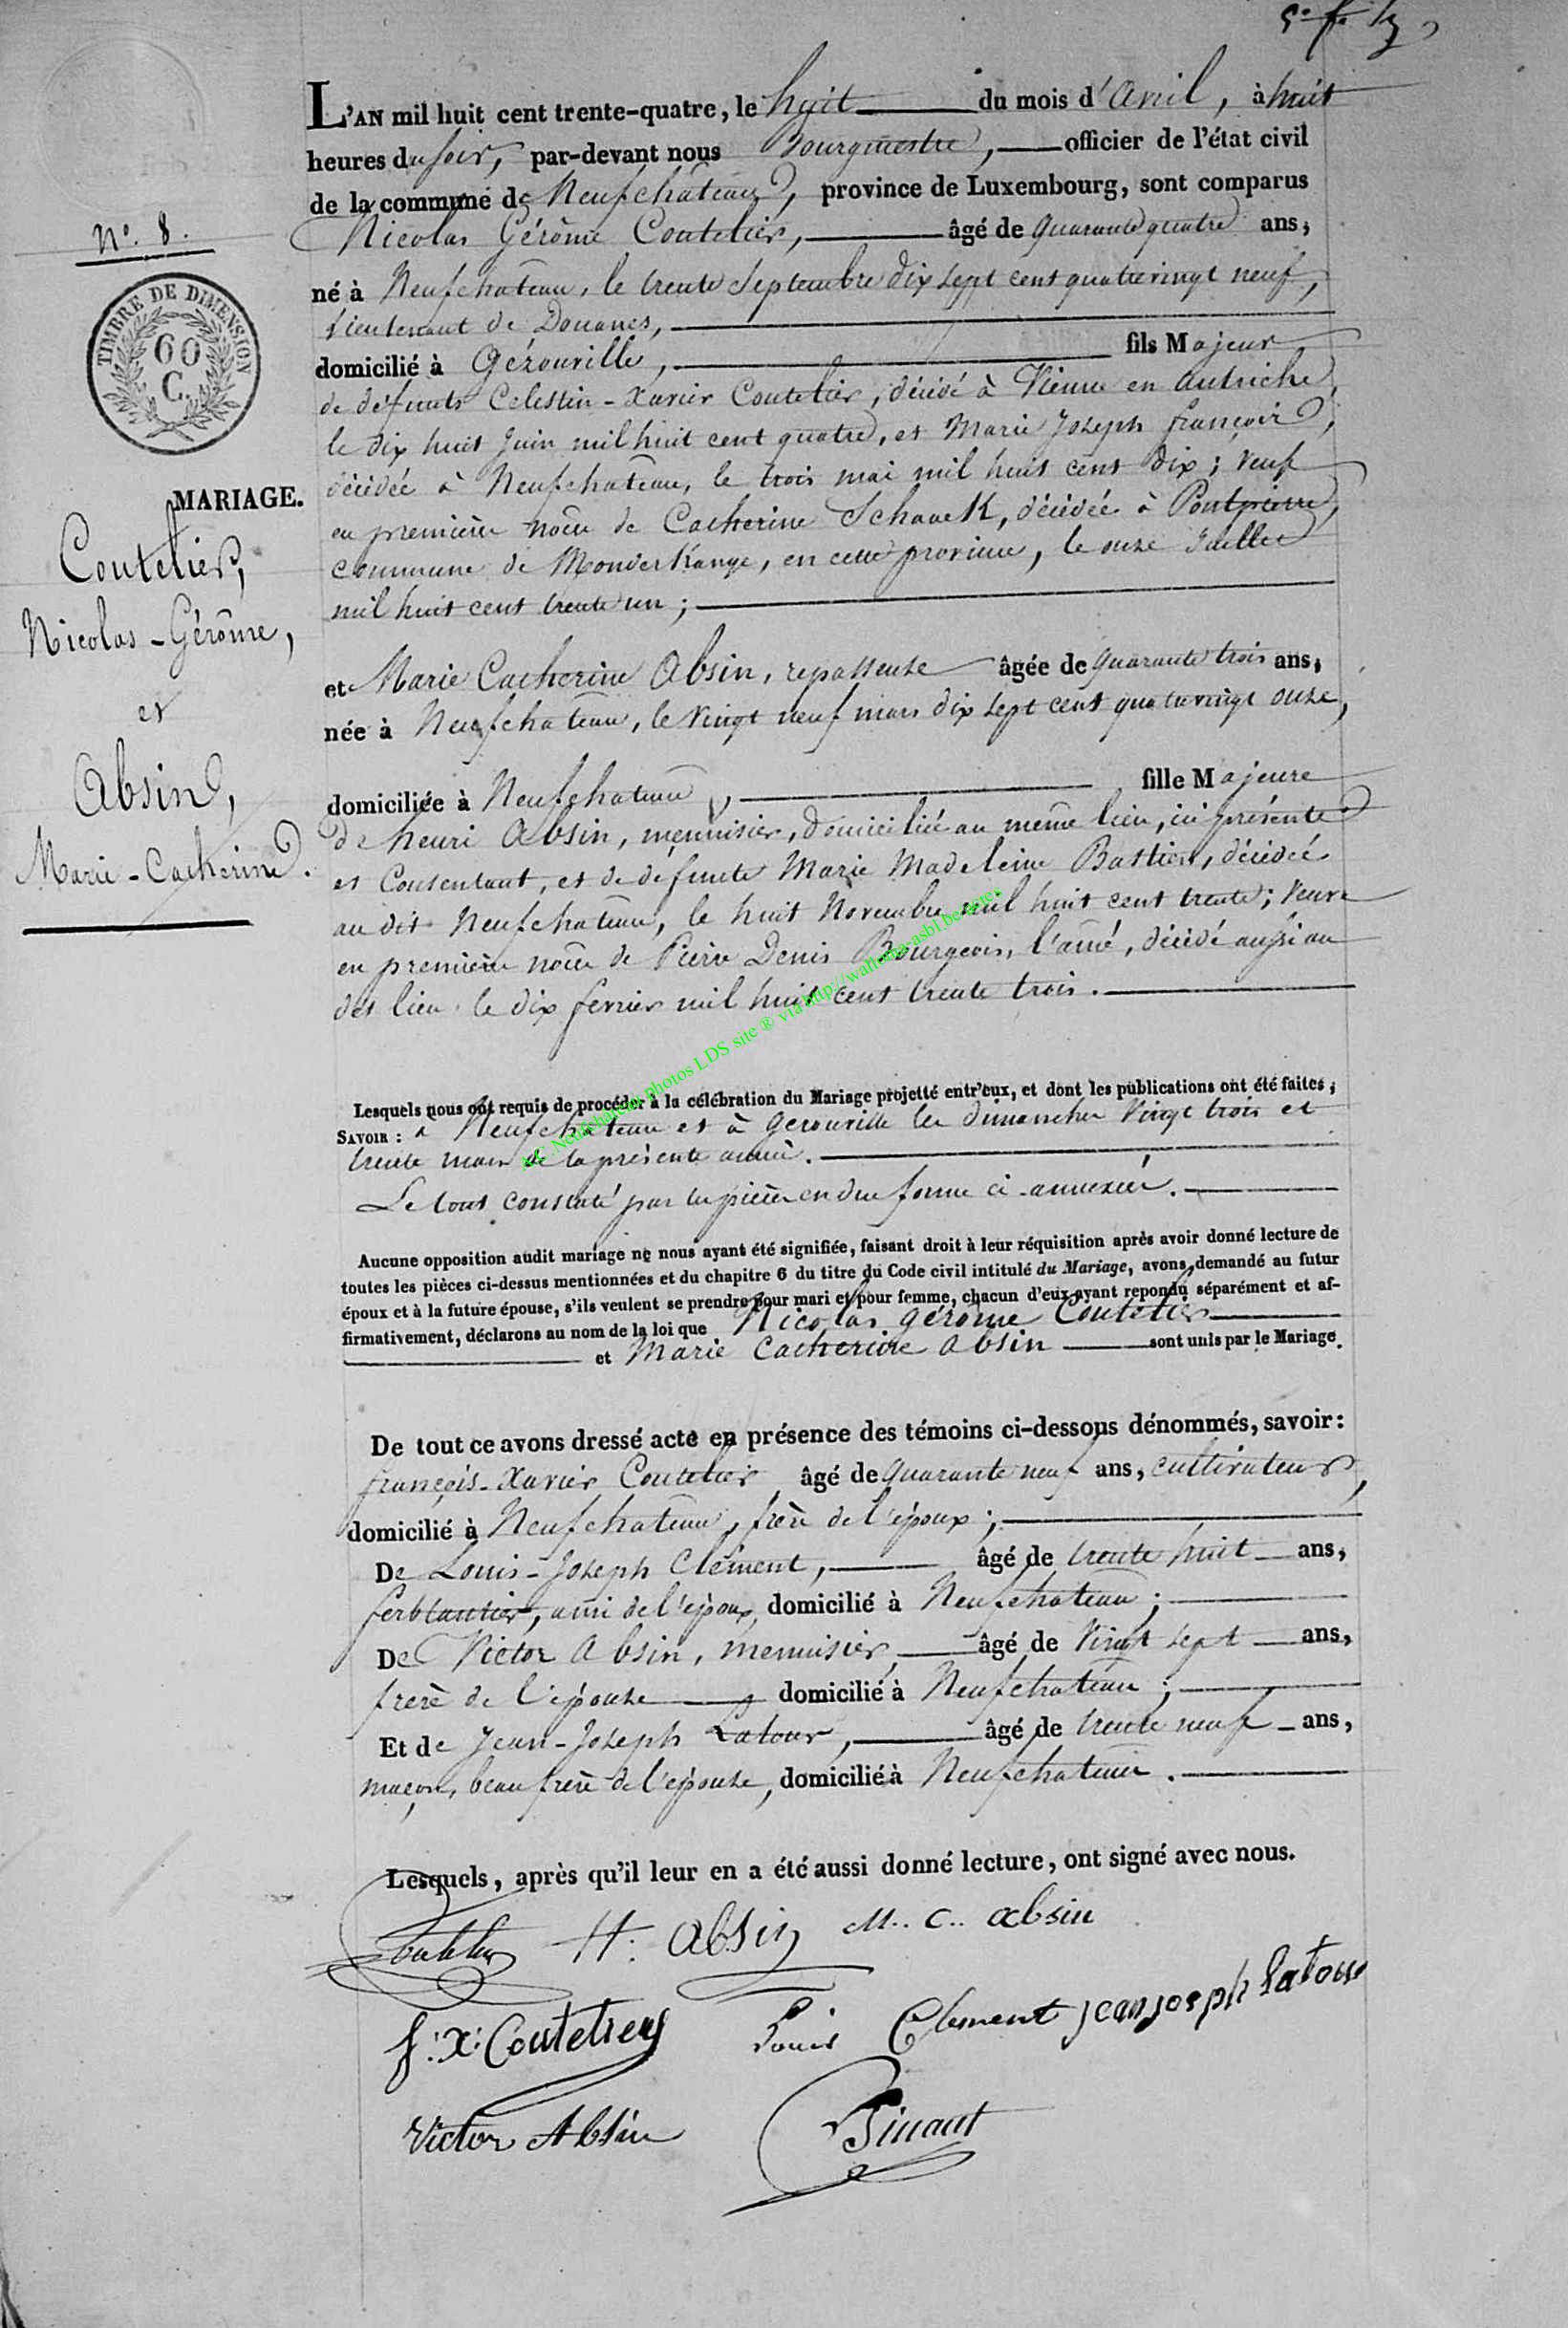 L'AN mil huit cent trente-quatre, le huit du mois d'avril, à huit
heures du soir, par-devant nous Bourgmestre, officier de l'état civil
de la commune de Neufchâteau, province de Luxembourg, sont comparus
Nicolas Gérôme Coutelier, âgé de quarante quatre ans,
né à Neufchateau, le trente Septembre dix sept cent quatrevingt neuf,
Lieutenant de Douanes,
domicilié à Gérouville, fils Majeur
de défunts Celestin-Xavier Coutelier, décédé à Vienne en Autriche,
le dix huit Juin mil huit cent quatre, et Marie Joseph françois,
décédée à Neufchateau, le trois mai mil huit cent dix; veuf
en première noce de Catherine Schaack, décédée à Pontpierre,
commune de Monderkange, en cette province, le onze Juillet
mil huit cent trente un;
et Marie Catherine Absin, repasseuse âgée de quarante trois ans,
née à Neufchateau, le vingt neuf mars dix sept cent quatrevingt onze,
domiciliée à Neufchateau, fille Majeure
de henri Absin, menuisier, domicilié au même lieu, ici présente
et Consentant, et de défunte Marie Madeleine Bastien, décédée
au dit Neufchateau, le huit Novembre mil huit cent trente; veuve
en première noce de Pierre Denis Bourgeois, l'ainé, décédé aussi au
dit lieu le dix fevrier mil huit cent trente trois.
Lesquels nous ont requis de procéder à la célébration du Mariage projetté entr'eux, et dont les publications ont été faites,
SAVOIR : à Neufchâteau et à Gerouville les dimanches vingt trois et
trente mars de la présente année.
Le tout constaté par les pièces en due forme ci-annexées.
Aucune opposition audit mariage ne nous ayant été signifiée, faisant droit à leur réquisition après avoir donné lecture de
toutes les pièces ci-dessus mentionnées et du chapitre 6 du titre du Code civil intitulé du Mariage, avons demandé au futur
époux et à la future épouse, s'ils veulent se prendre pour mari et pour femme, chacun d'eux ayant repondu séparément et af-
firmativement, déclarons au nom de la loi que Nicolas gérôme Coutelier
et Marie Catherine absin sont unis par le Mariage.
De tout ce avons dressé acte en présence des témoins ci-dessous dénommés, savoir :
françois-Xavier Coutelier âgé de quarante neuf ans, cultivateur,
domicilié à Neufchateau, frère de l'époux;
De Louis-Joseph Clément, âgé de trente huit ans,
ferblantier, ami de l'époux, domicilié à Neufchateau;
De Victor Absin, menuisier, âgé de vingt sept ans,
frère de l'épouse domicilié à Neufchateau;
Et de Jean-Joseph Latour, âgé de trente neuf ans,
maçon, beau frère de l'épouse, domicilié à Neufchateau.
Lesquels, après qu'il leur en a été aussi donné lecture, ont signé avec nous.
Coutelier H. Absin M.. C.. absin
f. x. Coutelier Louis Clement jean joseph Latour
Victor Absin
N.º 8.
TIMBRE DE DIMENSION
60
C.
MARIAGE.
Coutelier,
Nicolas-Gérôme,
et
Absin,
Marie-Catherine.